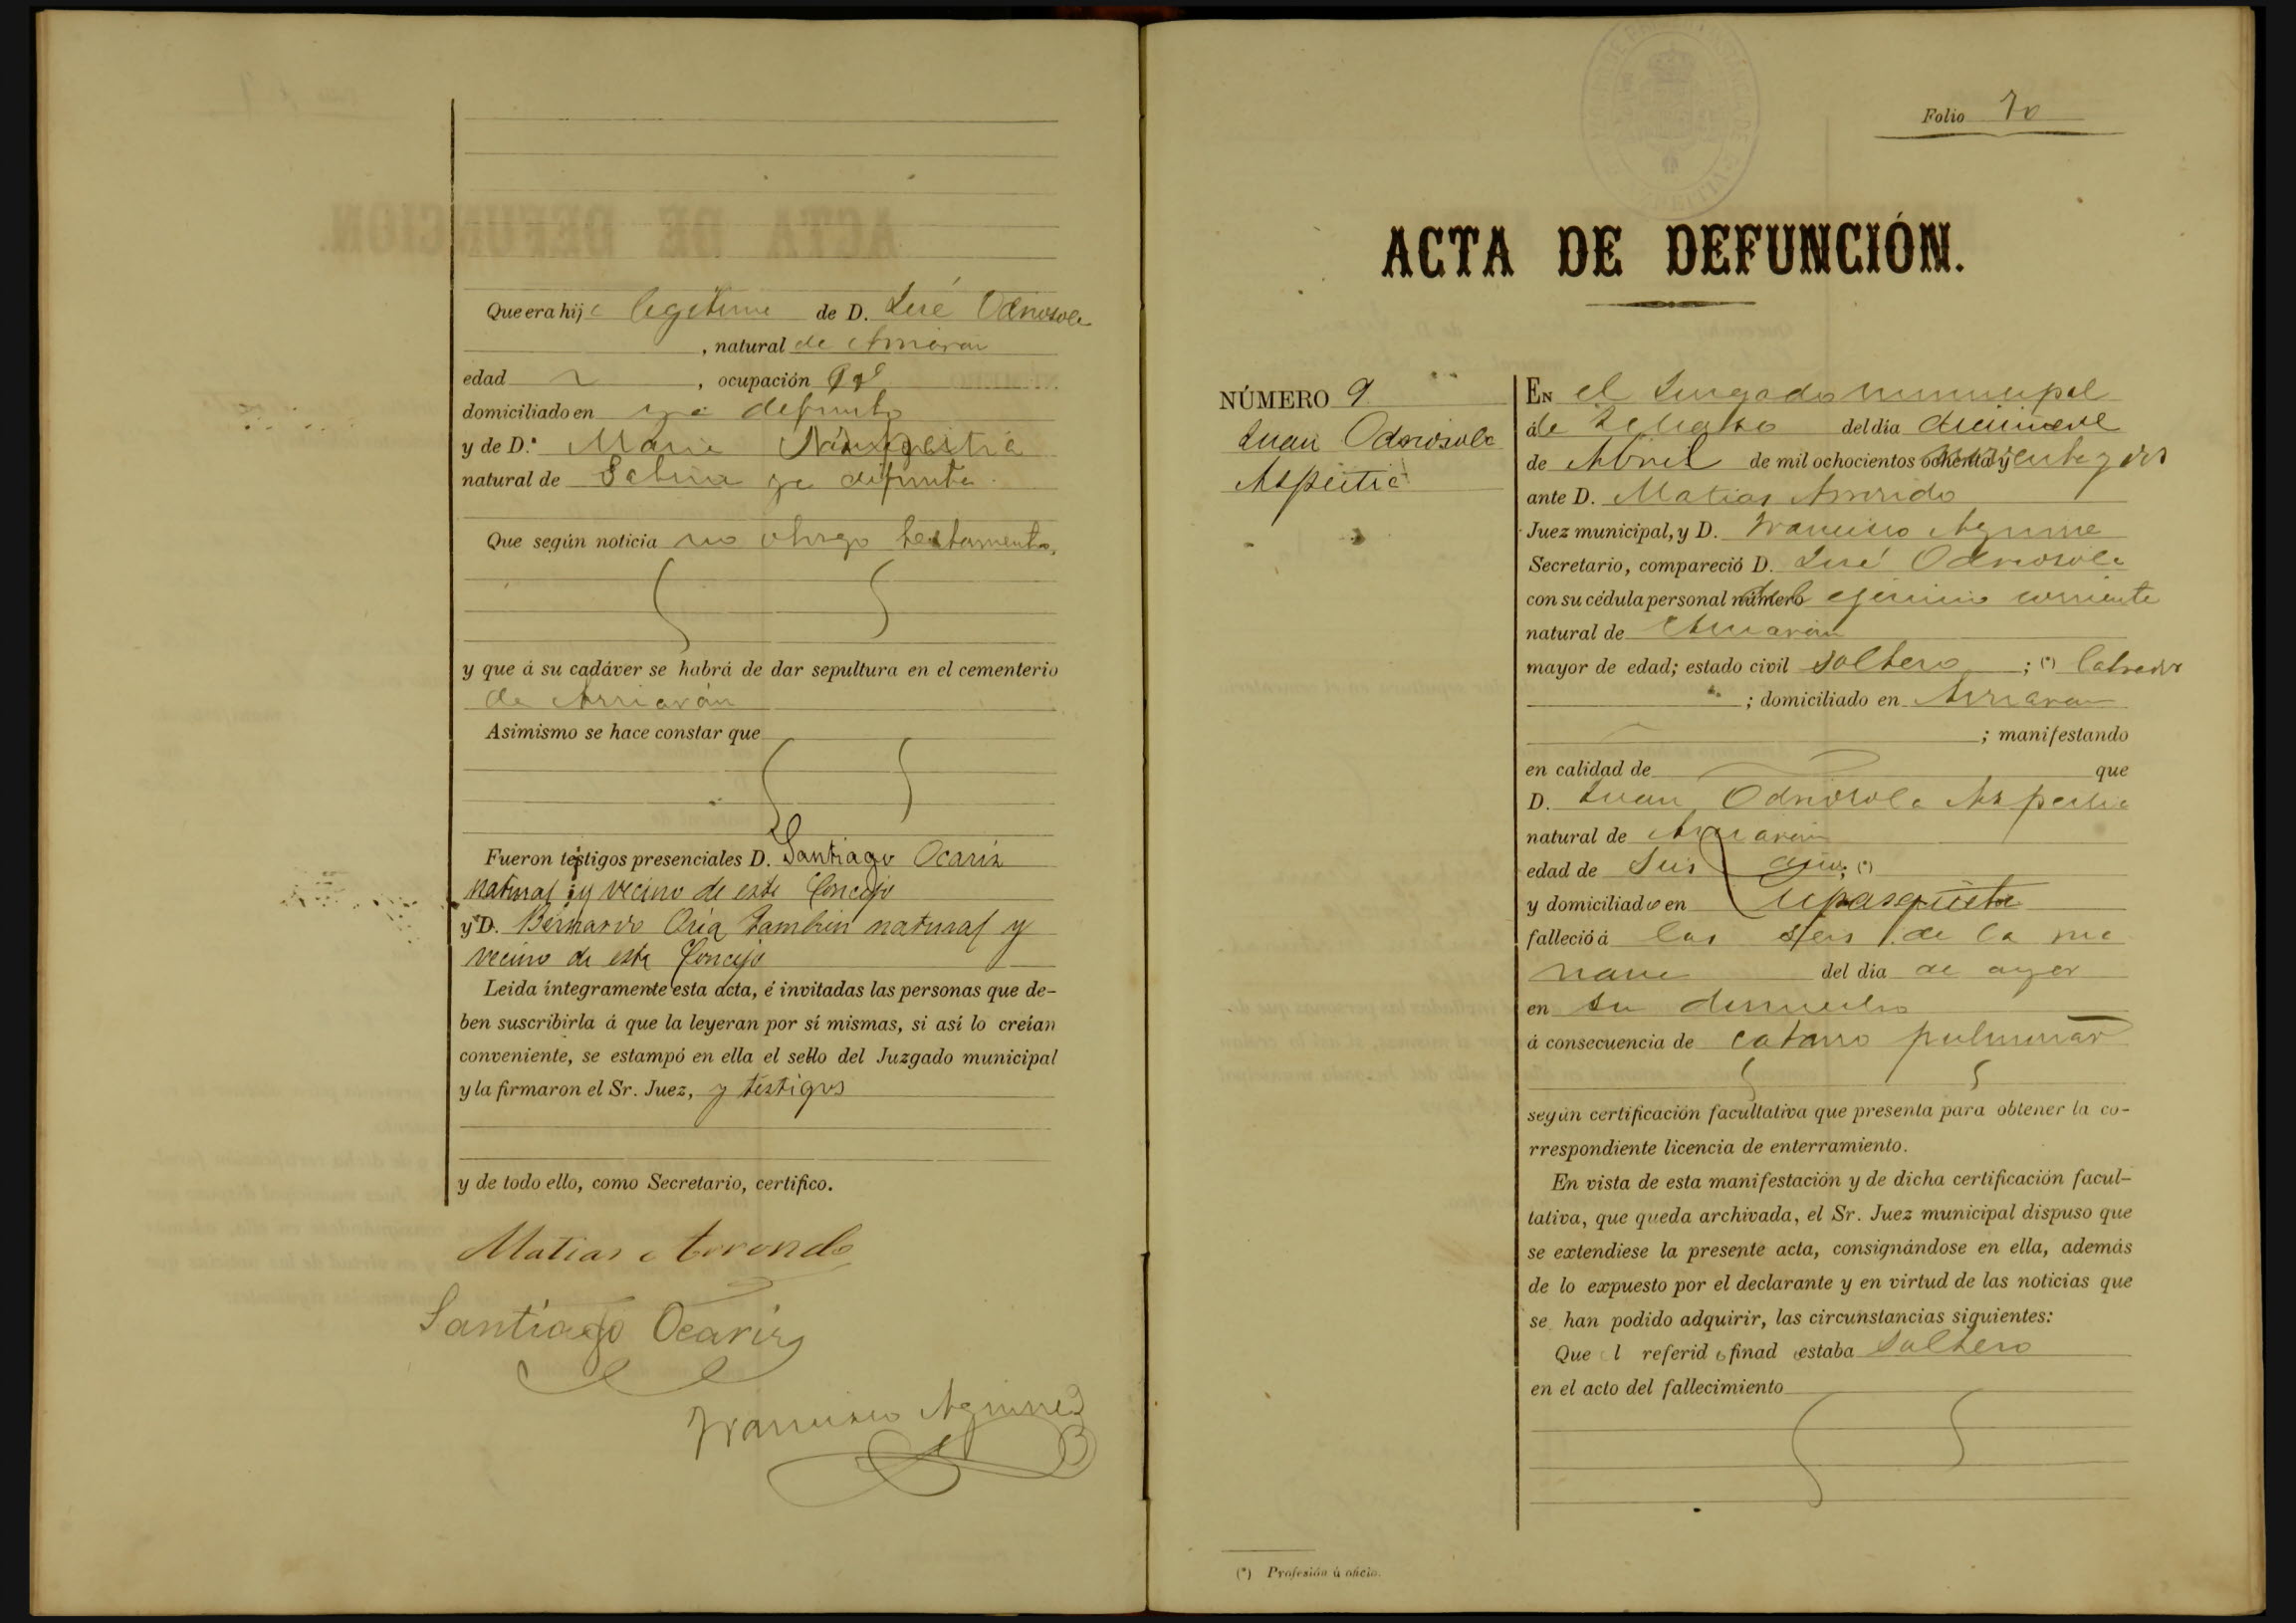 Que era hijo legitimo de D. José Odriosola
, natural de Arriarán
edad , ocupación
domiciliado en ya defunto
y de D.ª Maria
natural de ya difunta
Que según noticia no otorgo testamento,
y que á su cadáver se habrá de dar sepultura en el cementerio
de Arriarán
Asimismo se hace constar que
Fueron testigos presenciales D. Santiago Ocariz
natural y vecino de este Concejo
y D. Bernardo Oria tambien natural y
vecino de este Concejo
Leida íntegramente esta acta, é invitadas las personas que de-
ben suscribirla á que la leyeran por sí mismas, si así lo creían
conveniente, se estampó en ella el sello del Juzgado municipal
y la firmaron el Sr. Juez, y testigos
y de todo ello, como Secretario, certifico.
Matias Arrondo
Santiago Ocariz
Francisco Aguirre
Folio 70
ACTA DE DEFUNCIÓN.
NÚMERO 9
Juan Odriosola
Aspeitia
EN el Jusgado municipal
de del dia diecinueve
de Abril de mil ochocientos ochenta y noventa y dos
ante D. Matias Arrondo
Juez municipal, y D. Francisco Aguirre
Secretario, compareció D. José Odriosola
con su cédula personal número del ejercicio corriente
natural de Arriarán
mayor de edad; estado civil soltero ; (*) labrador
; domiciliado en Arriaran
; manifestando
en calidad de que
D. Juan Odriosola Aspeitia
natural de Arriarán
edad de seis años; (*)
y domiciliado en
falleció á las seis de la ma
nana del dia de ayer
en su domicilio
á consecuencia de catarro pulmonar
según certificación facultativa que presenta para obtener la co-
rrespondiente licencia de enterramiento.
En vista de esta manifestación y de dicha certificación facul-
tativa, que queda archivada, el Sr. Juez municipal dispuso que
se extendiese la presente acta, consignándose en ella, además
de lo expuesto por el declarante y en virtud de las noticias que
se han podido adquirir, las circunstancias siguientes:
Que el referido finado estaba soltero
en el acto del fallecimiento
(*) Profesión ú oficio.